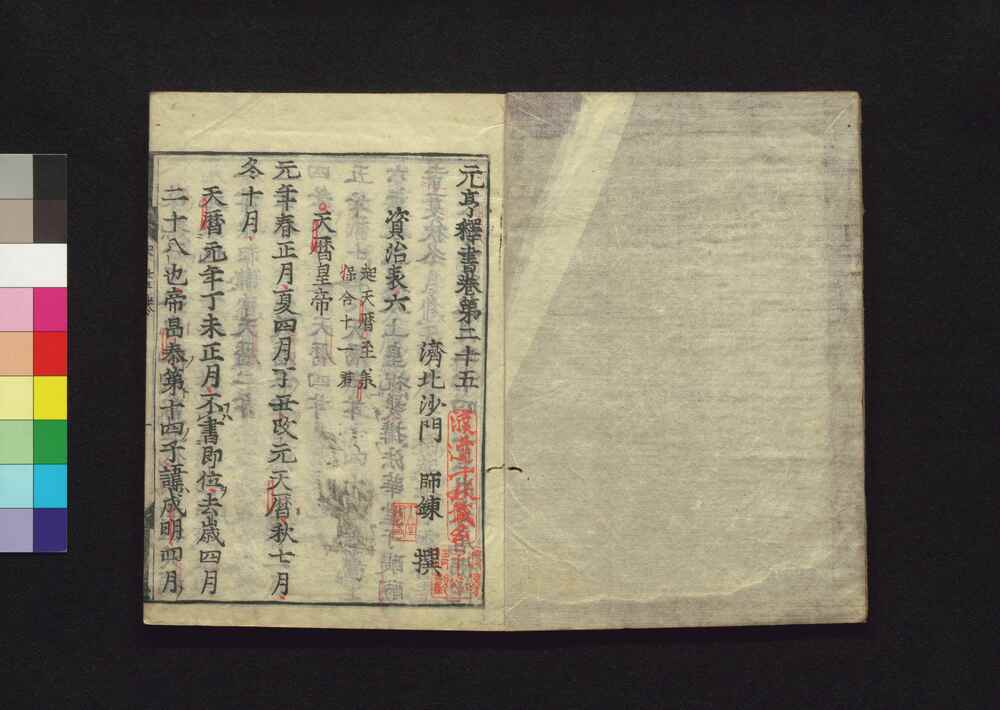 元亨釋書卷第二十五
濟北沙門 師錬 撰
資治表六
起天曆至永
保合十一舊
天曆皇帝
元年春正月夏四月丁丑改元天曆秋七月
冬十月
天曆元年丁未正月不書即位去歳四月
二十八也帝昌泰第十四子諱成明四月